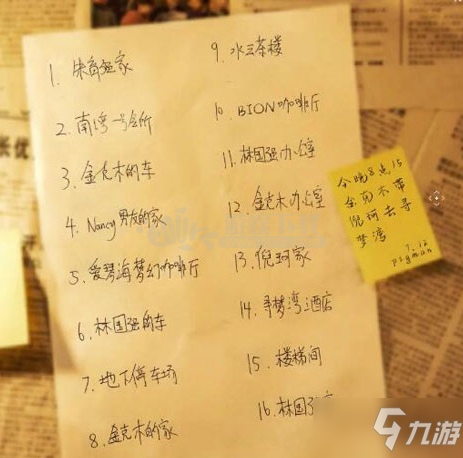 1. 朱育钰家
2. 南湾一号会所
3. 金克木的车
4. Nancy男友的家
5. 爱琴海梦幻咖啡厅
6. 林国强的车
7. 地下停车场
8. 金克木的家
9. 水云茶楼
10. BION咖啡厅
11. 林国强办公室
12. 金克木办公室
13. 倪珂家
14. 寻梦湾酒店
15. 楼梯间
16. 林国
今晚8点15
金克木带
倪珂去寻
梦湾
7.12
pigman
九游